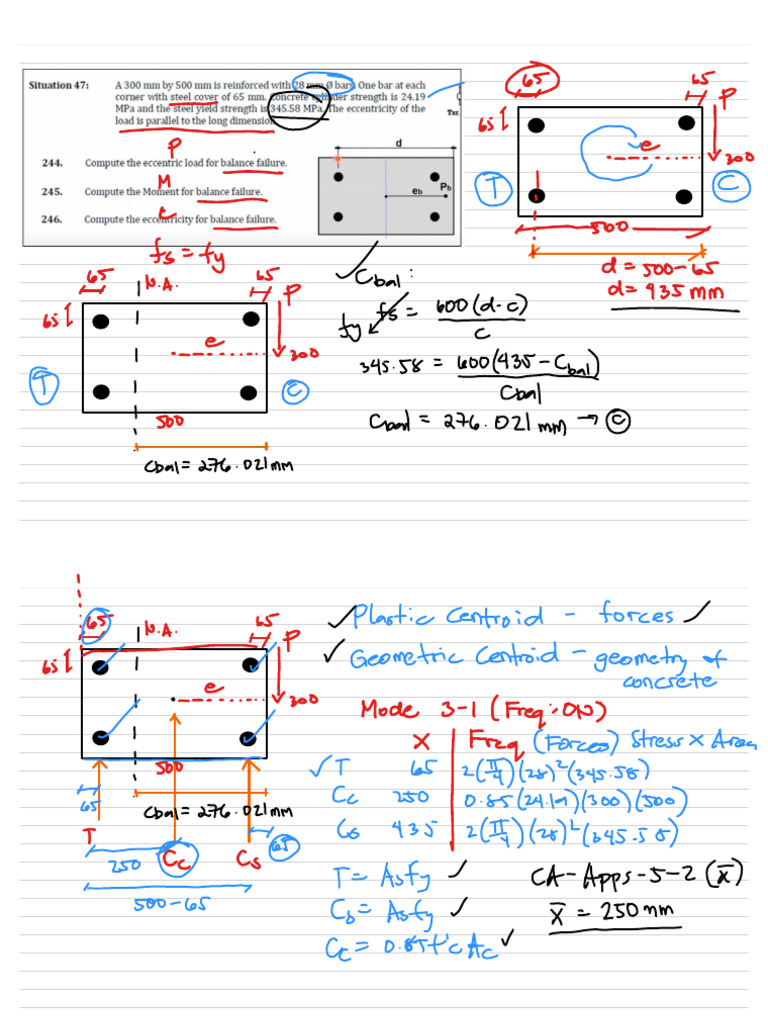 Situation 47: A 300 mm by 500 mm is reinforced with 28 mm Ø bars. One bar at each
corner with steel cover of 65 mm. Concrete cylinder strength is 24.19
MPa and the steel yield strength is 345.58 MPa. The eccentricity of the
load is parallel to the long dimension.
P
244. Compute the eccentric load for balance failure.
M
245. Compute the Moment for balance failure.
e
246. Compute the eccentricity for balance failure.
fs = fy
d
eb
Pb
65
65
P
65
e
300
T
C
500
d = 500-65
d = 435 mm
65
N.A.
65
P
65
e
300
T
C
500
Cbal = 276.021mm
Cbal :
fs = 600(d-c)
c
fy
345.58 = 600(435-Cbal)
Cbal
Cbal = 276.021mm → C
65
N.A.
65
P
65
e
300
500
65
Cbal = 276.021mm
T
Cc
Cs
65
250
500-65
Plastic Centroid - forces
Geometric Centroid - geometry of
concrete
Mode 3-1 (Freq: ON)
X Freq (Forces) Stress x Area
T 65 2(π/4)(28)²(345.58)
Cc 250 0.85(24.19)(300)(500)
Cs 435 2(π/4)(28)²(345.58)
T = Asfy
Cs = Asfy
Cc = 0.85f'c Ac
CA-Apps-5-2 (x̄)
x̄ = 250mm